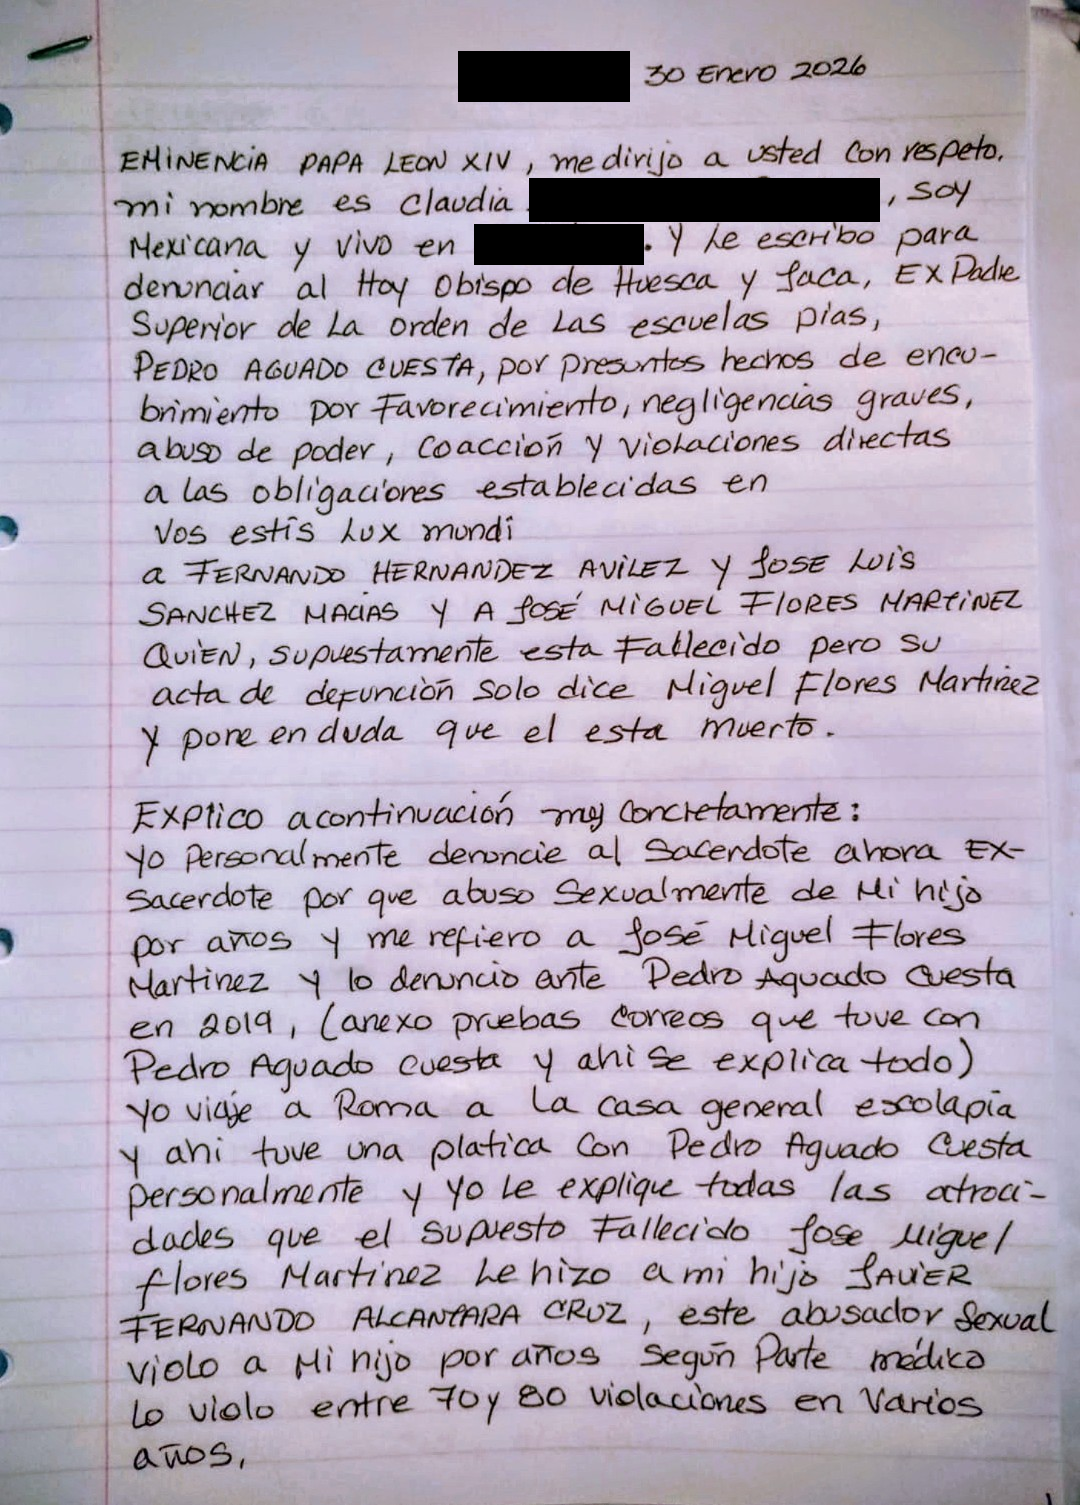 30 Enero 2026
EMINENCIA PAPA LEON XIV, me dirijo a usted con respeto.
mi nombre es Claudia , soy
Mexicana y vivo en . Y Le escribo para
denunciar al Hoy Obispo de Huesca y Jaca, EX Padre
Superior de La orden de Las escuelas pías,
PEDRO AGUADO CUESTA, por presuntos hechos de encu-
brimiento por Favorecimiento, negligencias graves,
abuso de poder, coacción y violaciones directas
a las obligaciones establecidas en
Vos estis Lux mundi
a FERNANDO HERNANDEZ AVILEZ y JOSE LUIS
SANCHEZ MACIAS Y A JOSÉ MIGUEL FLORES MARTINEZ
QUIEN, supuestamente esta Fallecido pero su
acta de defunción solo dice Miguel Flores Martinez
y pone en duda que el esta muerto.
Explico acontinuación muy Concretamente:
Yo Personalmente denuncie al Sacerdote ahora EX-
Sacerdote por que abuso Sexualmente de Mi hijo
por años y me refiero a José Miguel Flores
Martinez y lo denuncio ante Pedro Aguado Cuesta
en 2019, (anexo pruebas correos que tuve con
Pedro Aguado Cuesta y ahi se explica todo)
Yo viaje a Roma a La casa general escolapia
y ahi tuve una platica con Pedro Aguado Cuesta
personalmente y yo Le explique todas las atroci-
dades que el supuesto Fallecido Jose Miguel
flores Martinez Le hizo a mi hijo JAVIER
FERNANDO ALCANTARA CRUZ, este abusador Sexual
violo a Mi hijo por años según Parte médico
Lo violo entre 70 y 80 violaciones en Varios
años.